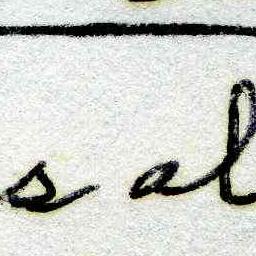 s al